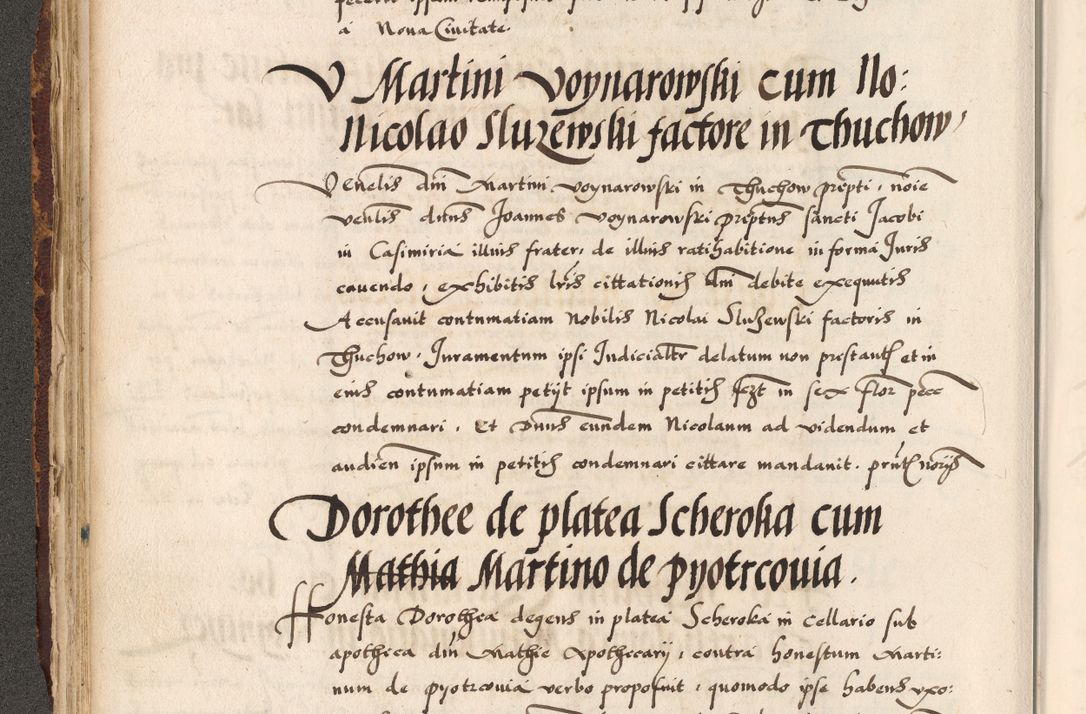 á Nova Civitate.
V Martini Voynarowski cum No:
Nicolao Sluzewski factore in Thuchow,
Venelis dni Martini Voynarowski in Thuchow prepti, noie
venlis ditus Joannes Voynarowski preptus sancti Jacobi
in Casimiria illius frater, de illius ratihabitione in forma Juris
cavendo, exhibitis lris cittationis dni debite exequutis
Accusavit contumatiam Nobilis Nicolai Sluzewski factoris in
Thuchow, Juramentum ipsi Judicialtr delatum non prestant et in
eius contumatiam petijt ipsum in petitis in sex flor pece
condemnari. Et Dnus eundem Nicolaum ad videndum et
audien ipsum in petitis condemnari cittare mandavit.
Dorothee de platea Scheroka cum
Mathia Martino de Pyotrcovia.
Honesta Dorothea degens in platea Scheroka in cellario sub
apotheca dni Mathie Apothecarij, contra honestum Marti:
num de Pyotrcovia verbo proposuit, quomodo ipse habens uxo: